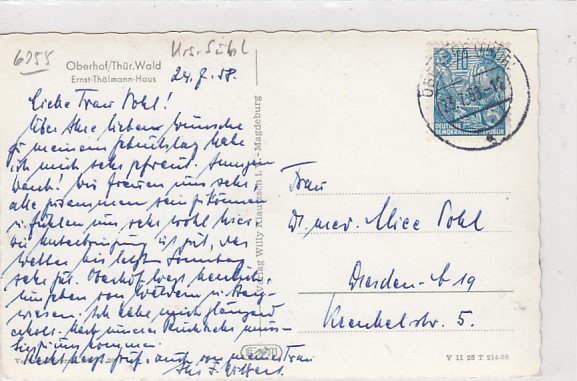 6255
Urs. Suhl
Oberhof/Thür. Wald
Ernst-Thälmann-Haus
24.7.58.
Liebe Frau Pohl!
Über Ihre lieben Wünsche
zu meinem Geburtstag habe
ich mich sehr gefreut. Innigen
Dank! Wir freuen uns sehr,
alle zusammen sein zu können
u. fühlen uns sehr wohl hier.
Die Unterbringung ist gut, das
Wetter bis letzten Sonntag
sehr gut. Oberhof liegt herrlich,
umgeben von Wäldern u. Berg-
wiesen. Ich habe mich glänzend
erholt. Nach unserer Rückkehr müssen
Sie zu uns kommen.
Recht herzl. Grüße, auch von meiner Frau
Ihr
Verlag Willy Klautzsch Magdeburg
10
DEUTSCHE
DEMOKRATISCHE REPUBLIK
Frau
Dr. med. Alice Pohl
Dresden-A 19
Krenkelstr. 5.
V 11 28 T 214-58